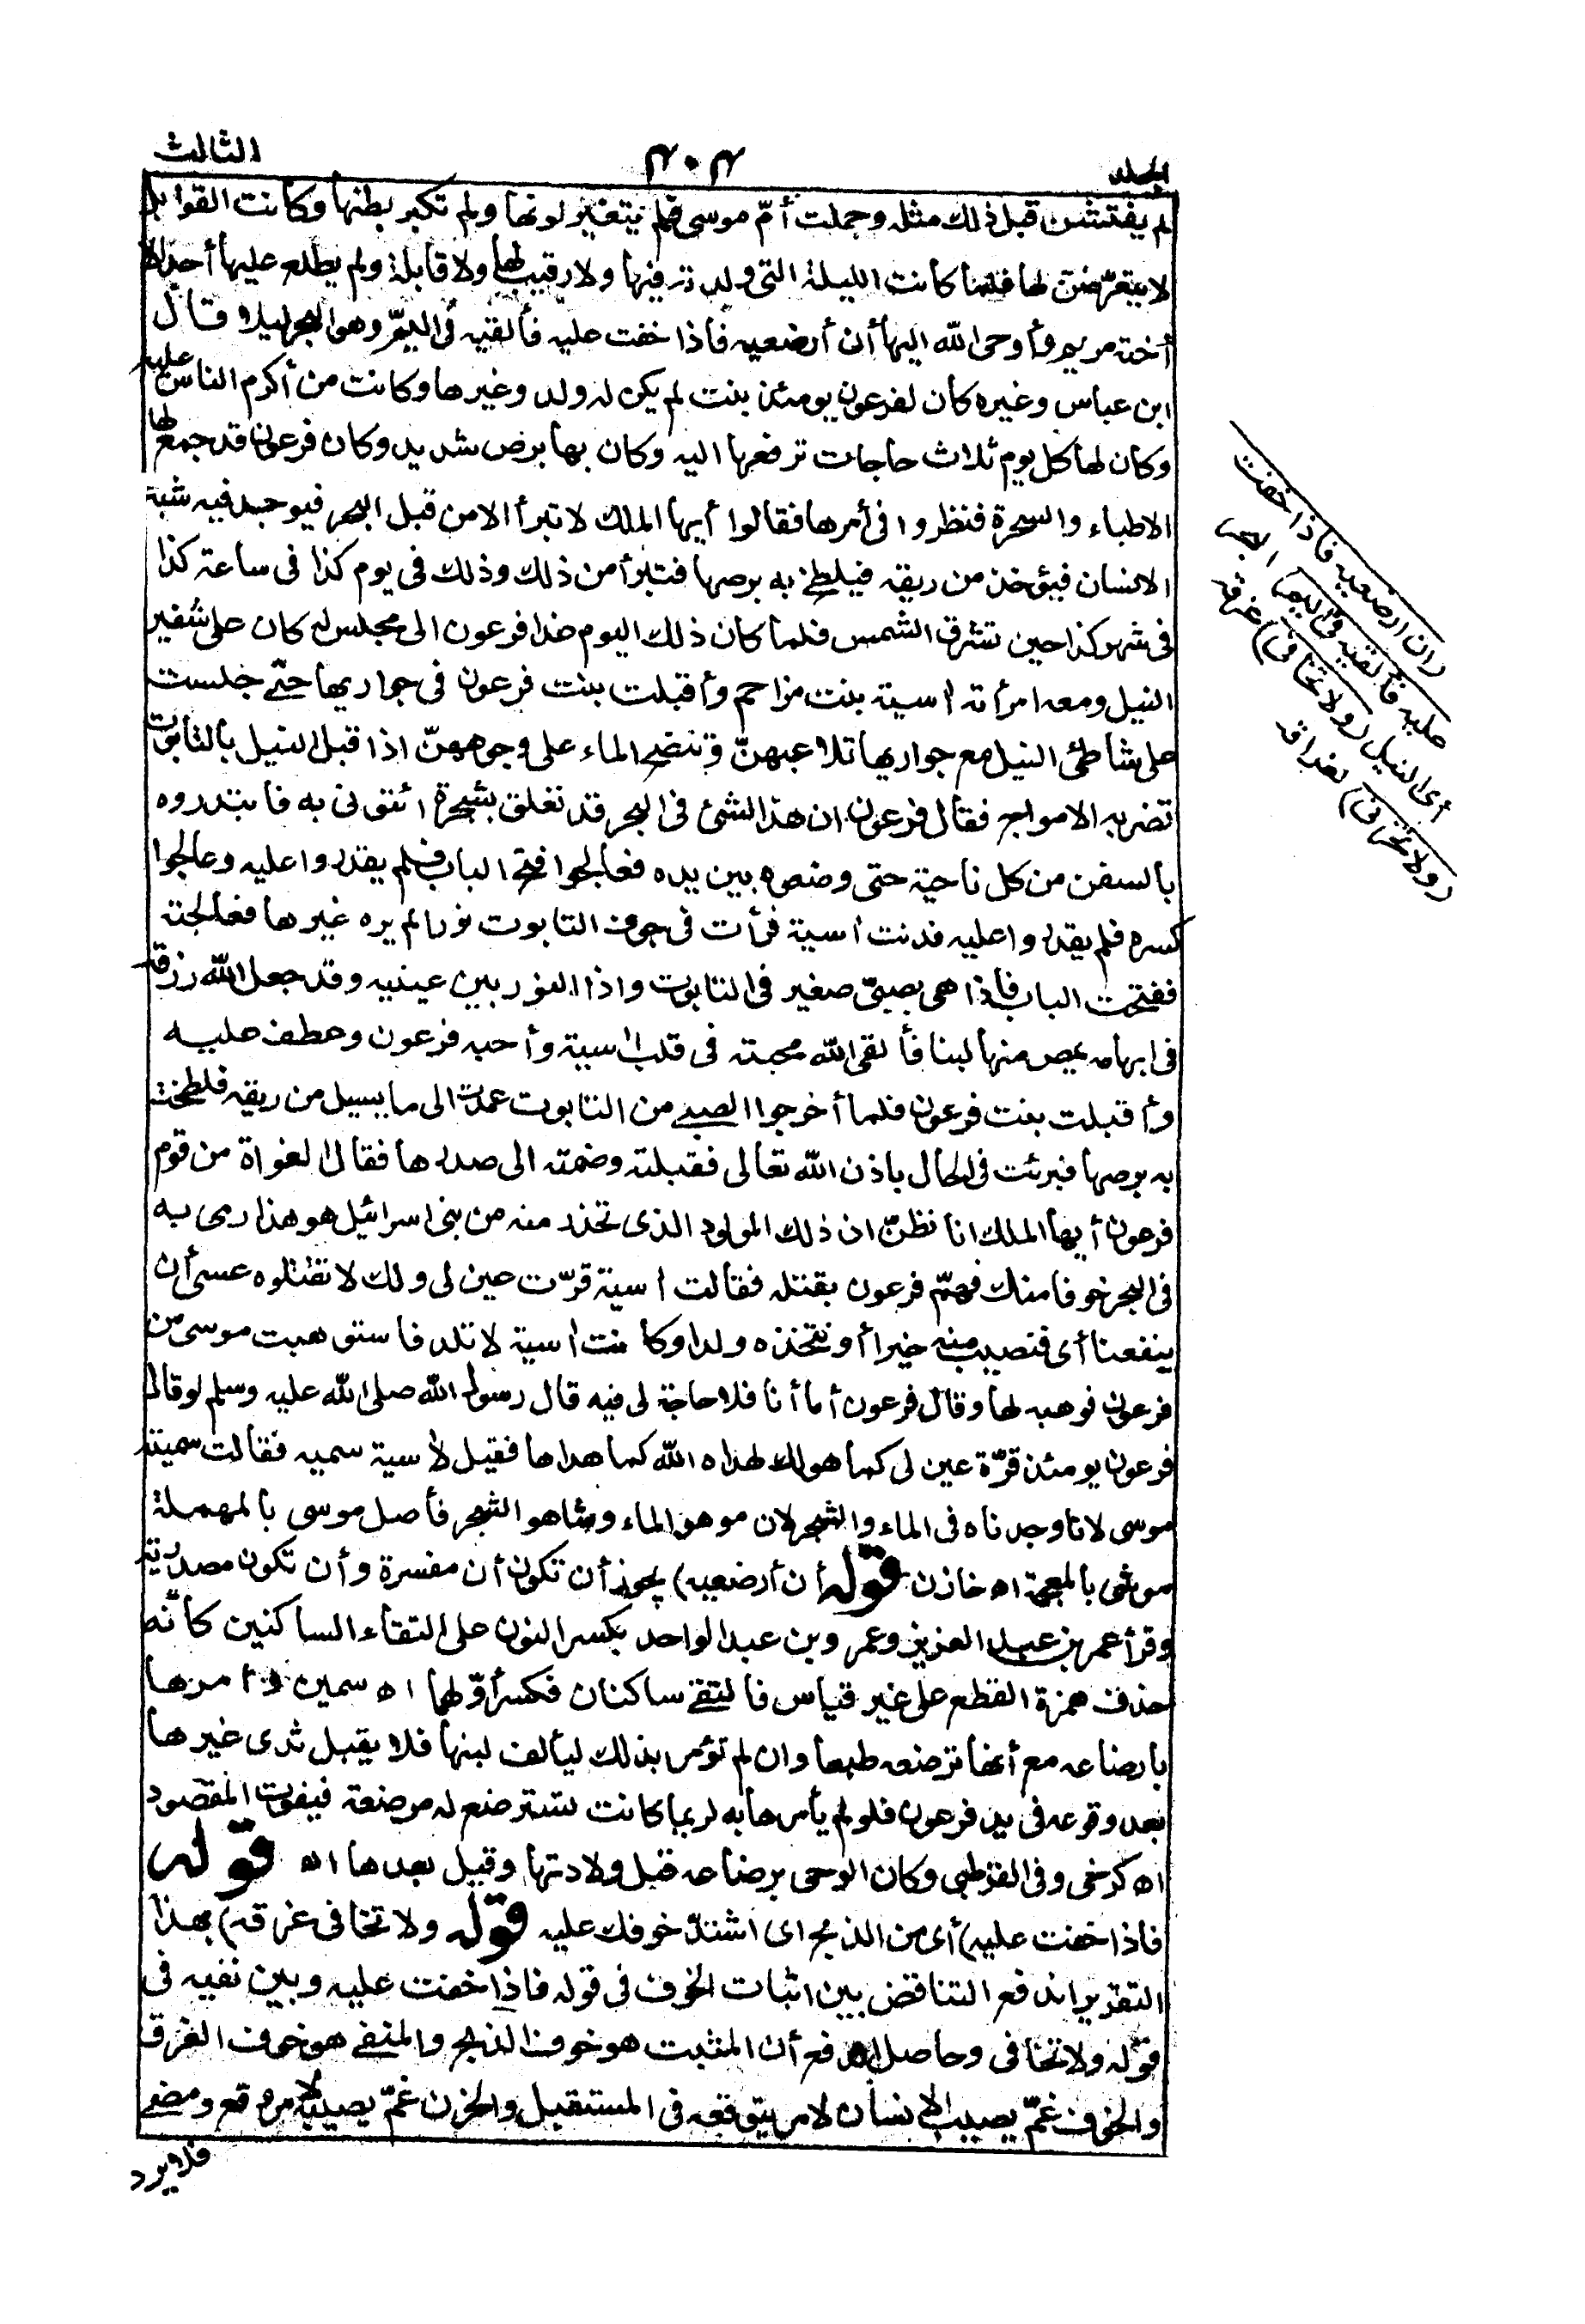 الجلد
٣٠٣
الثالث
لم يفتشن قبل ذلك مثله وحملت أمّ موسى فلم يتغير لونها ولم تكبر بطنها وكانت القوابل
لا يتعرّضن لها فلما كانت الليلة التى ولدته فيها ولا رقيب لها ولا قابلة ولم يطلع عليها أحد الا
أخته مريم وأوحى الله اليها أن أرضعيه فاذا خفت عليه فألقيه فى اليمّ وهو البحر ليلا قال
ابن عباس وغيره كان لفرعون يومئذ بنت لم يكن له ولد وغيرها وكانت من أكرم الناس عليه
وكان لها كل يوم ثلاث حاجات ترفعها اليه وكان بها برص شديد وكان فرعون قد جمع لها
الاطباء والسحرة فنظروا فى أمرها فقالوا أيها الملك لا تبرأ الا من قبل البحر فيوجد فيه شبه
الانسان فيؤخذ من ريقه فيلطخ به برصها فتبرأ من ذلك وذلك فى يوم كذا فى ساعة كذا
فى شهر كذا حين تشرق الشمس فلما كان ذلك اليوم غدا فرعون الى مجلس له كان على شفير
النيل ومعه امرأته اسية بنت مزاحم وأقبلت بنت فرعون فى جواريها حتّے جلست
على شاطئ النيل مع جواريها تلاعبهنّ وتنضح الماء على وجوههنّ اذا قبل النيل بالتابوت
تضربه الامواج فقال فرعون ان هذا الشئ فى البحر قد تعلق بشجرة ائتونى به فابتدروه
بالسفن من كل ناحية حتى وضعوه بين يده فعالجوا فتح الباب فلم يقدروا عليه وعالجوا
كسره فلم يقدروا عليه فدنت اسية فرأت فى جوف التابوت نورا لم يره غيرها فعالجته
ففتحت الباب فاذا هى بصبىّ صغير فى التابوت واذا النور بين عينيه وقد جعل الله رزقه
فى ابهامه يمص منها لبنا فألقى الله محبته فى قلب اسية وأحبه فرعون وعطف عليه
وأقبلت بنت فرعون فلما أخرجوا الصبے من التابوت عمدت الى ما يسيل من ريقه فلطخت
به برصها فبرئت فى الحال باذن الله تعالى فقبلته وضمته الى صدرها فقال الغواة من قوم
فرعون أيها الملك انا نظنّ ان ذلك المولود الذى تحذر منه من بنى اسرائيل هو هذا رمى به
فى البحر خوفا منك فهمّ فرعون بقتله فقالت اسية قرّت عين لى ولك لا تقتلوه عسى أن
ينفعنا أى فنصيب منه خيرا أو نتخذه ولدا وكانت اسية لا تلد فاستوهبت موسى من
فرعون فوهبه لها وقال فرعون أما أنا فلا حاجة لى فيه قال رسول الله صلى الله عليه وسلم لو قال
فرعون يومئذ قرّة عين لى كما هو لك لهداه الله كما هداها فقيل لاسية سميه فقالت سميته
موسى لانا وجدناه فى الماء والشجر لان مو هو الماء وشا هو الشجر فأصل موسى بالمهملة
موشى بالمعجمة اه خازن قوله أن أرضعيه) يجوز أن تكون أن مفسرة وأن تكون مصدرية
وقرأ عمر بن عبد العزيز وعمرو بن عبد الواحد بكسر النون على التقاء الساكنين كأنه
حذف همزة القطع على غير قياس فالتقے ساكنان فكسر أوّلهما اه سمين وأمرها
بارضاعه مع أنها ترضعه طبعا وان لم تؤمر بذلك ليألف لبنها فلا يقبل ثدى غيرها
بعد وقوعه فى يد فرعون فلو لم يأمرها به لربما كانت تسترضع له مرضعة فيفوت المقصود
اه كرخى وفى القرطبى وكان الوحى برضاعه قبل ولادتها وقيل بعدها اه قوله
فاذا خفت عليه) أى من الذبح اى اشتدّ خوفك عليه قوله ولا تخافى غرقه) بهذا
التقدير اندفع التناقض بين اثبات الخوف فى قوله فاذا خفت عليه وبين نفيه فى
قوله ولا تخافى وحاصل الدفع أن المثبت هو خوف الذبح والمنفے هو خوف الغرق
والخوف غمّ يصيب الانسان لامر يتوقعه فى المستقبل والحزن غمّ يصيبه لامر وقع ومضے
فلا يرد
(ان ارضعيه فاذا خفت
عليه فألقيه فى اليم) البحر
أى النيل (ولا تخافى) غرقه
(ولا تحزنى) لفراقه